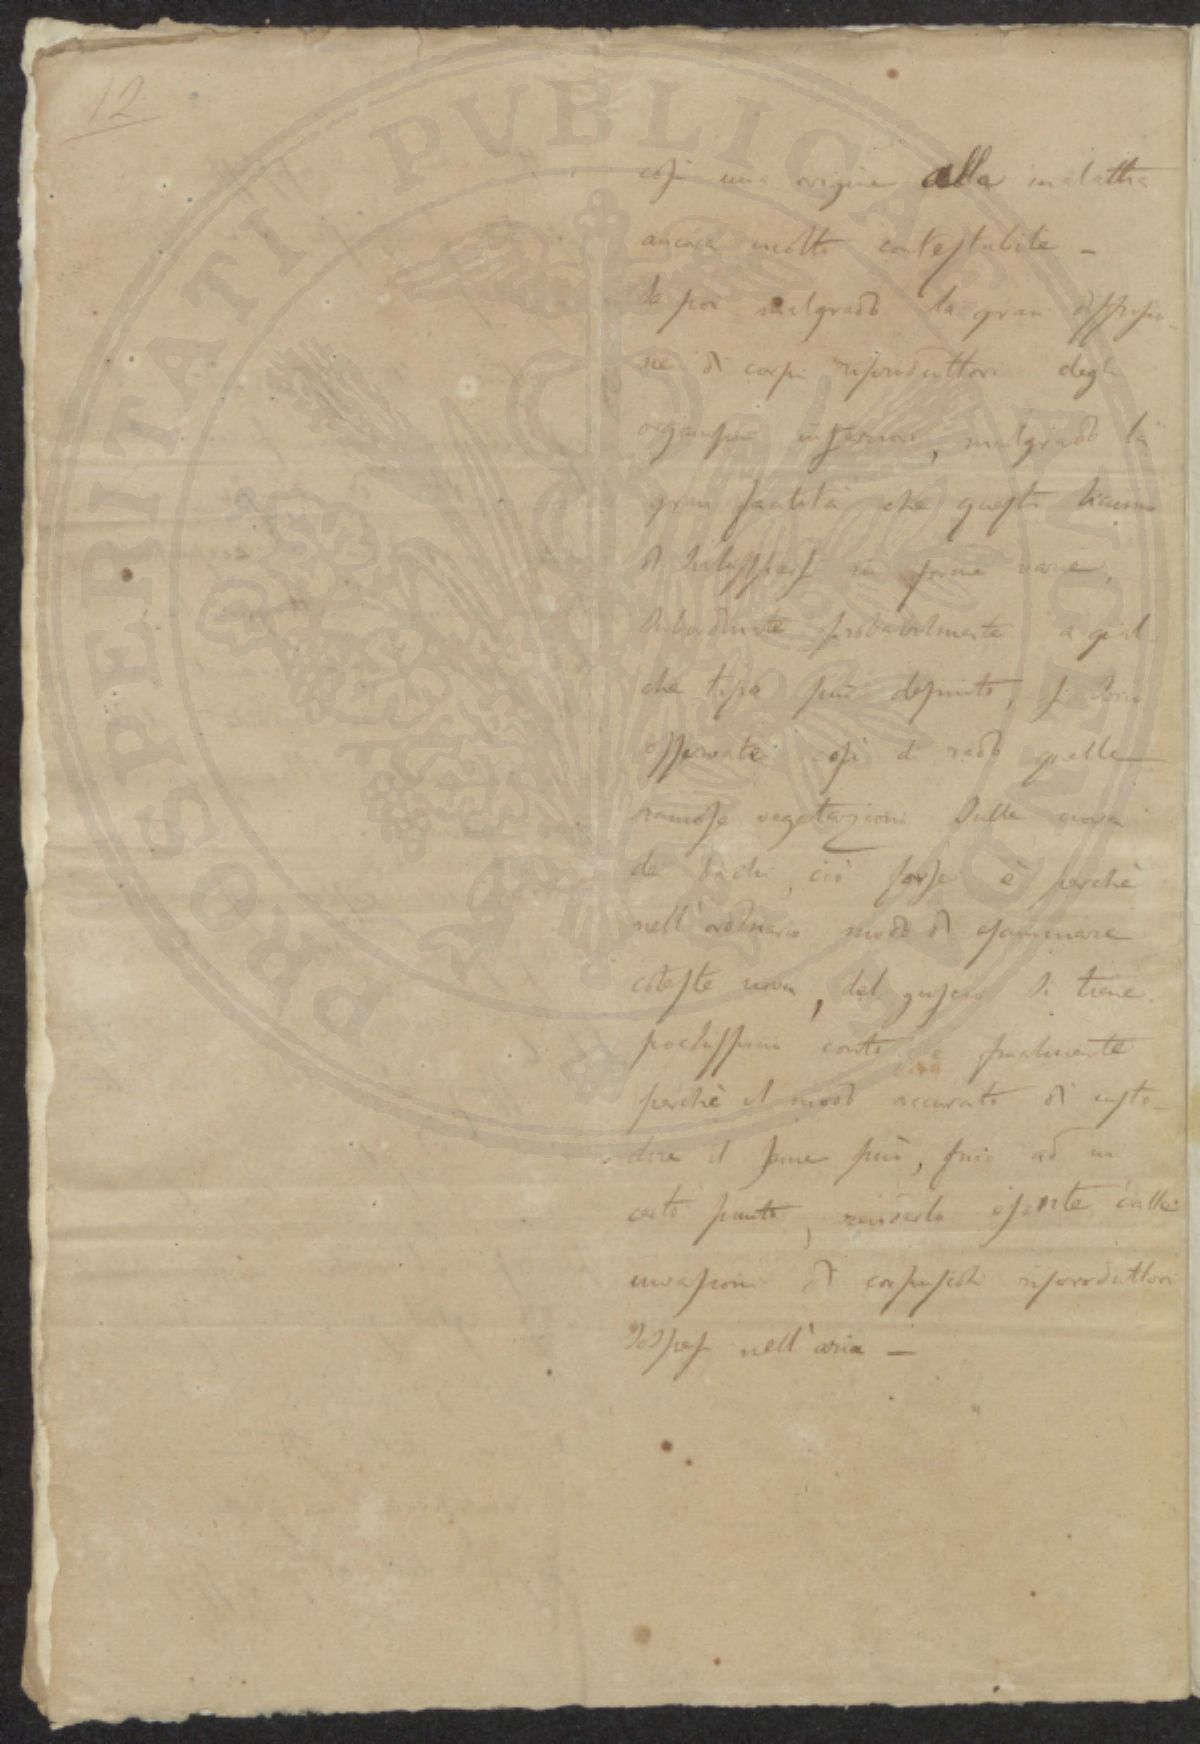 12
PROSPERITATI PVBLICAE AVGENDAE
così una origine alla malattia
ancora molto contestabile –
Se poi malgrado la gran diffusio-
ne di corpi riproduttori degli
organismi infimi, malgrado la
gran facilità che questi hanno
di svilupparsi in forme varie,
subordinate probabilmente a qual-
che tipo più definito, si sono
osservate così di rado quelle
ramose vegetazioni sulle uova
de bachi, ciò forse è perchè
nell'ordinario modo di esaminare
coteste uova, del guscio si tiene
pochissimo conto e finalmente
perchè il modo accurato di custo-
dire il seme può, fino ad un
certo punto, renderlo esente dalle
invasioni di corpuscoli riproduttori
sospesi nell'aria –